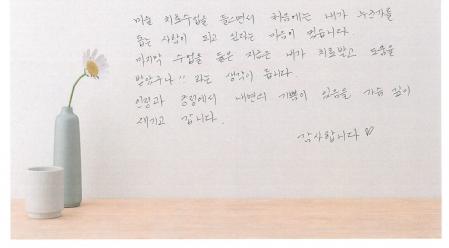 미술 치료수업을 들으면서 처음에는 내가 누군가를
돕는 사람이 되고 싶다는 마음이 컸습니다.
마지막 수업을 들은 지금은 내가 치료받고 도움을
받았구나!! 라는 생각이 듭니다.
인정과 긍정에서 내면의 기쁨이 있음을 가슴 깊이
새기고 갑니다.
감사합니다 ♡